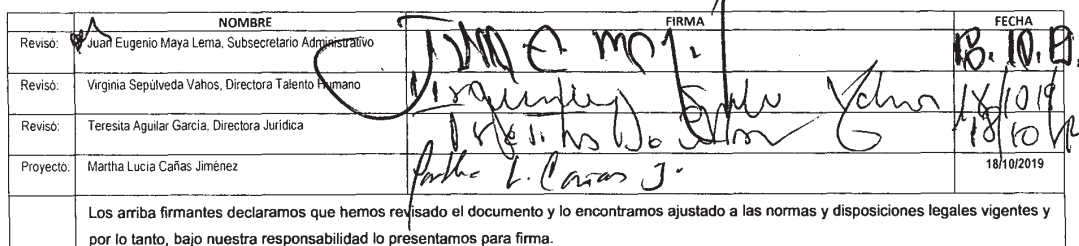 NOMBRE FIRMA FECHA
Revisó: Juan Eugenio Maya Lema, Subsecretario Administrativo
Revisó: Virginia Sepúlveda Vahos, Directora Talento Humano
Revisó: Teresita Aguilar Garcia, Directora Jurídica
Proyectó: Martha Lucia Cañas Jiménez Martha L. Cañas J. 18/10/2019
Los arriba firmantes declaramos que hemos revisado el documento y lo encontramos ajustado a las normas y disposiciones legales vigentes y
por lo tanto, bajo nuestra responsabilidad lo presentamos para firma.